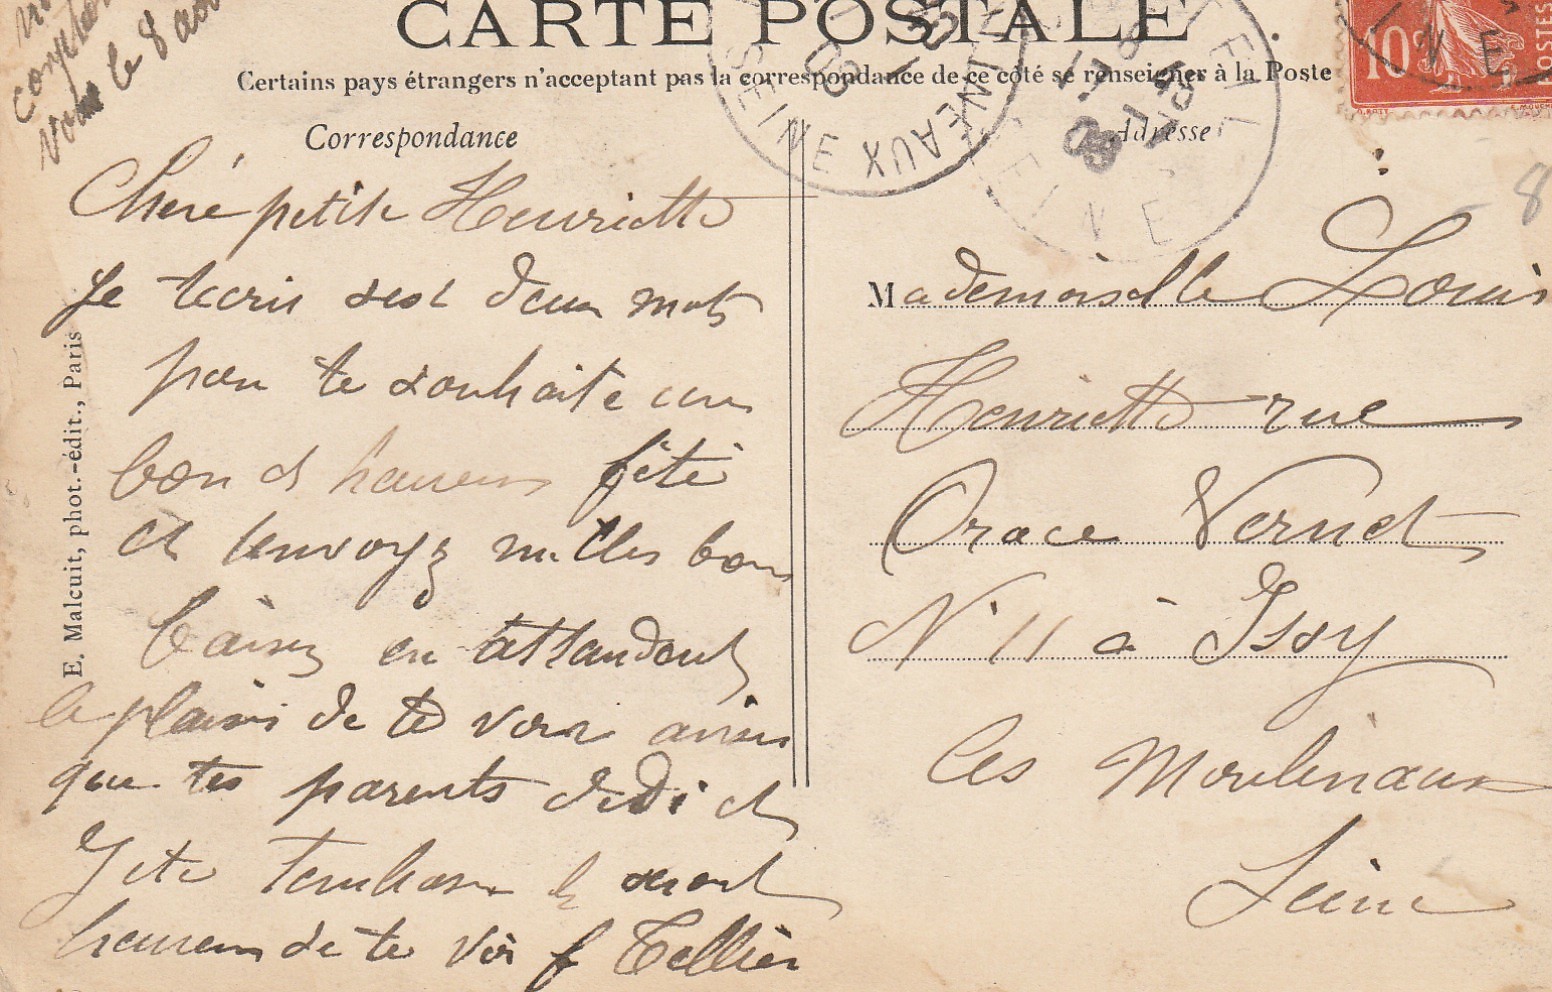 CARTE POSTALE
Certains pays étrangers n'acceptant pas la correspondance de ce côté se renseigner à la Poste
Correspondance
Adresse
le 8
Chéré petite Henriette
Je tecris deux mots
pour te souhaite une
bon et heureus fété
et tenvoyz milles bons
baisez en attandent
le plaisir de te voir ainsi
que tes parents
Je te
heureus de te voir f Tellier
E. Malcuit, phot.-édit., Paris
Mademoiselle Louis
Henriette rue
Orace Vernet
N° 11 à Issy
les Moulineaux
Seine
10
POSTES
SEINE
SEINE
8